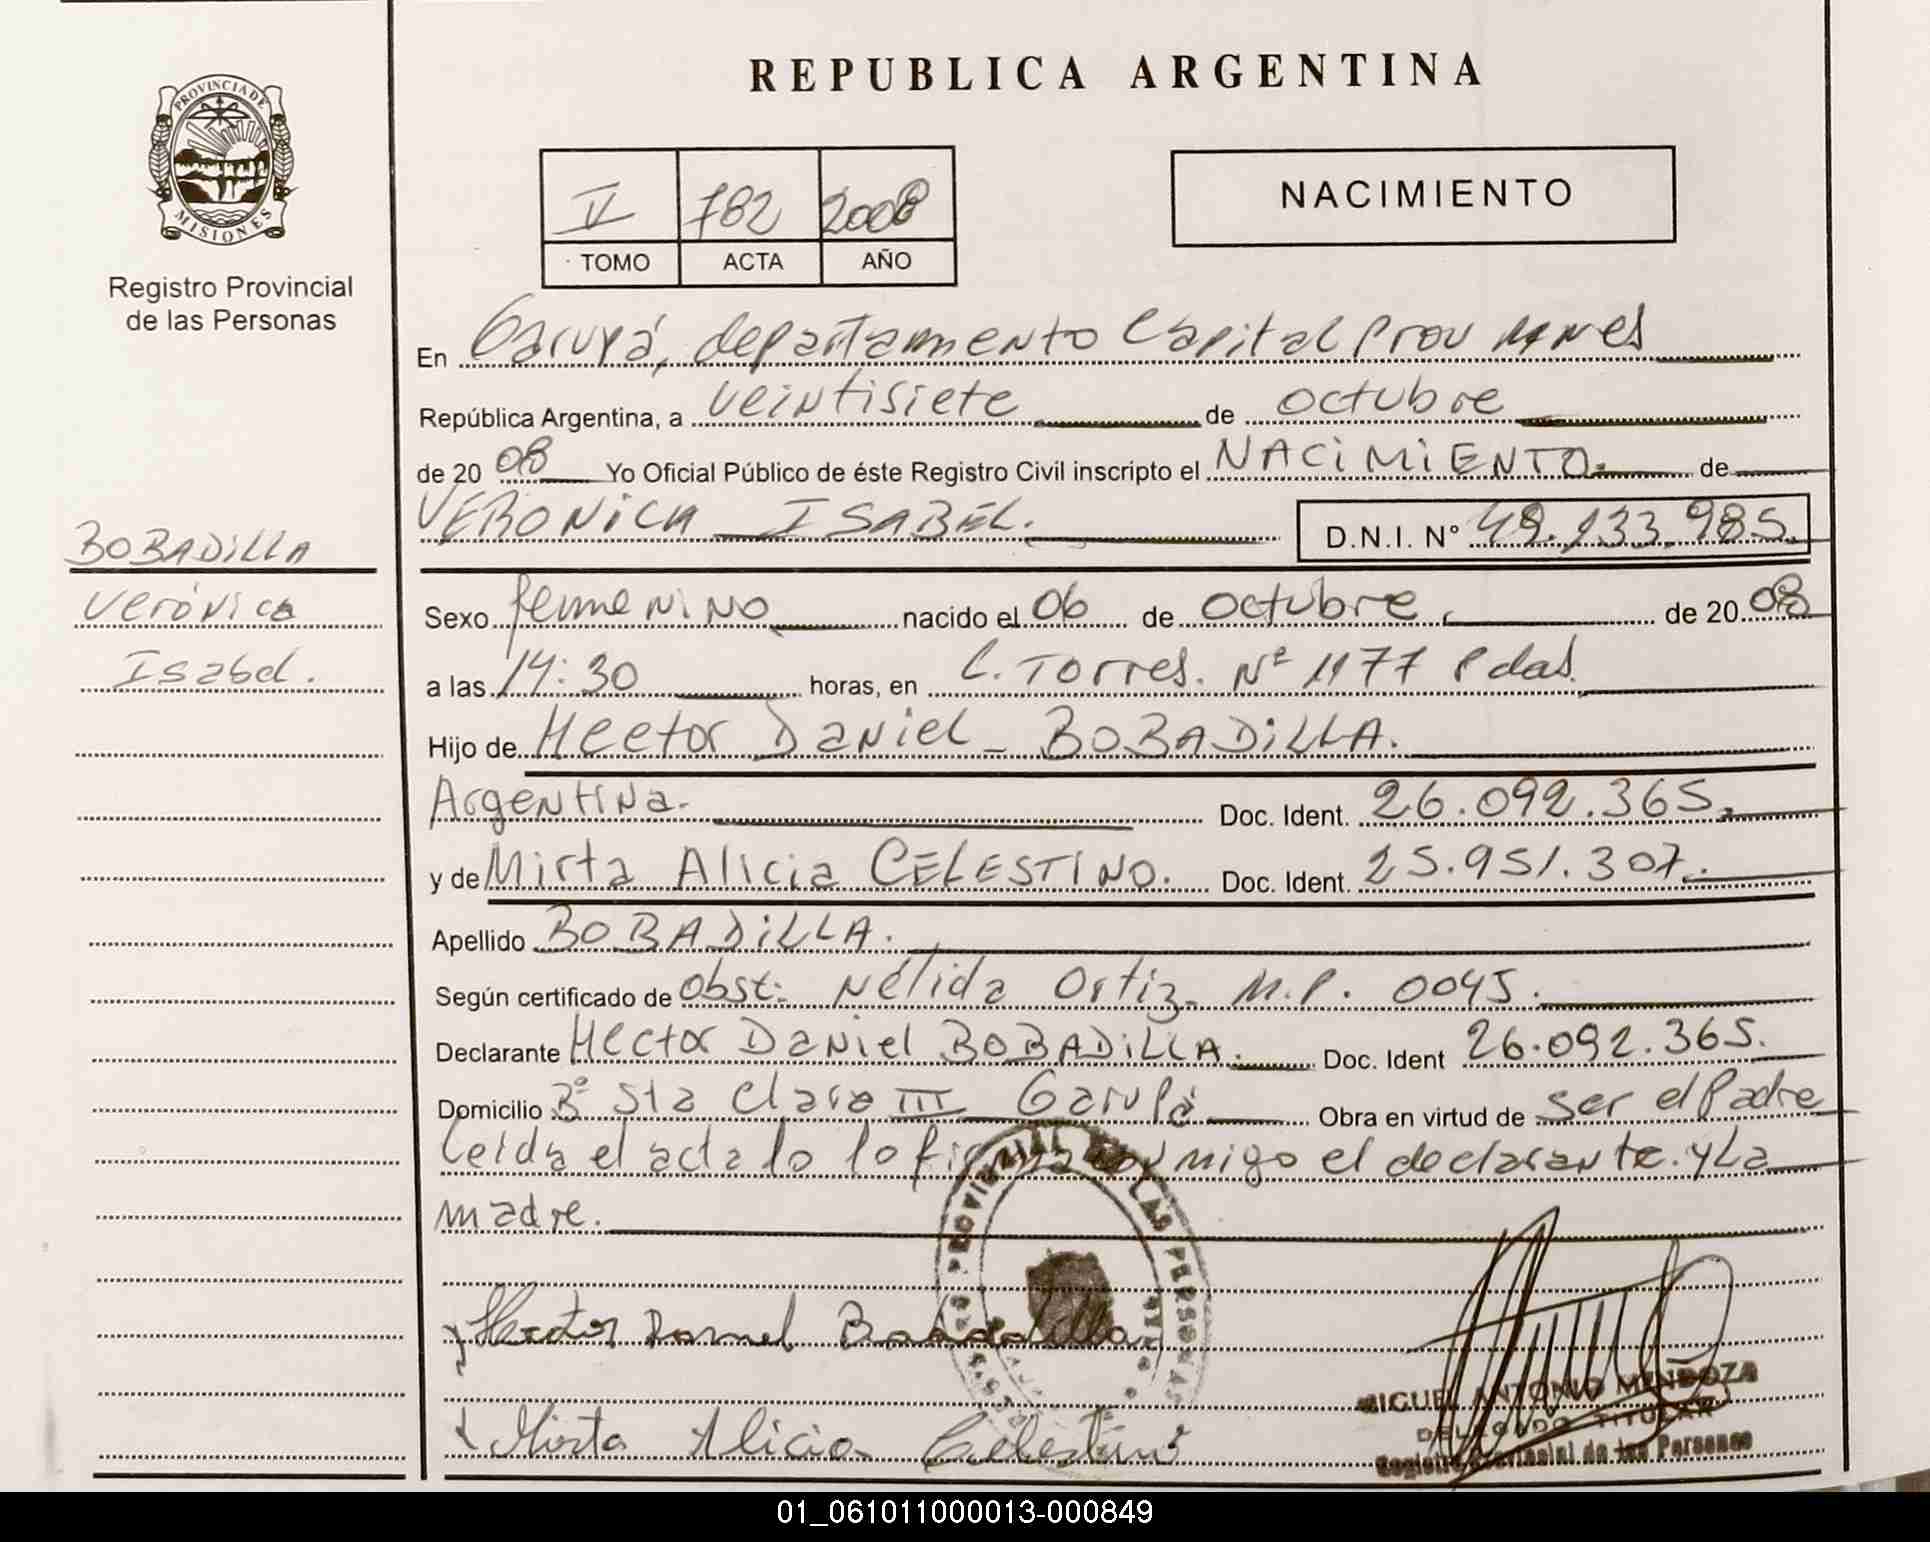 REPUBLICA ARGENTINA
PROVINCIA DE
MISIONES
Registro Provincial
de las Personas
V 782 2008
TOMO ACTA AÑO
NACIMIENTO
En Garupá, departamento Capital Prov
República Argentina, a veintisiete de octubre
de 20 08 Yo Oficial Público de éste Registro Civil inscripto el NACIMIENTO. de
VERONICA ISABEL. D.N.I. N° 49.133.985.
BOBADILLA
Verónica
Isabel.
Sexo femenino nacido el 06 de octubre de 20 08
a las 14:30 horas, en C. Torres. Nº 1177 Pdas.
Hijo de Hector Daniel BOBADILLA.
Argentina. Doc. Ident. 26.092.365.
y de Mirta Alicia CELESTINO. Doc. Ident. 25.951.307.
Apellido BOBADILLA.
Según certificado de Obst. Nélida Ortiz M.P. 0045.
Declarante Hector Daniel BOBADILLA. Doc. Ident 26.092.365.
Domicilio Bº Sta Clara III Garupá Obra en virtud de ser el Padre
Leída el acta lo conmigo el declarante. y La
madre.
Hector Daniel Bobadilla
Mirta Alicia Celestino
MIGUEL ANTONIO MENDOZA
DELEGADO TITULAR
Registro Provincial de las Personas
01_061011000013-000849